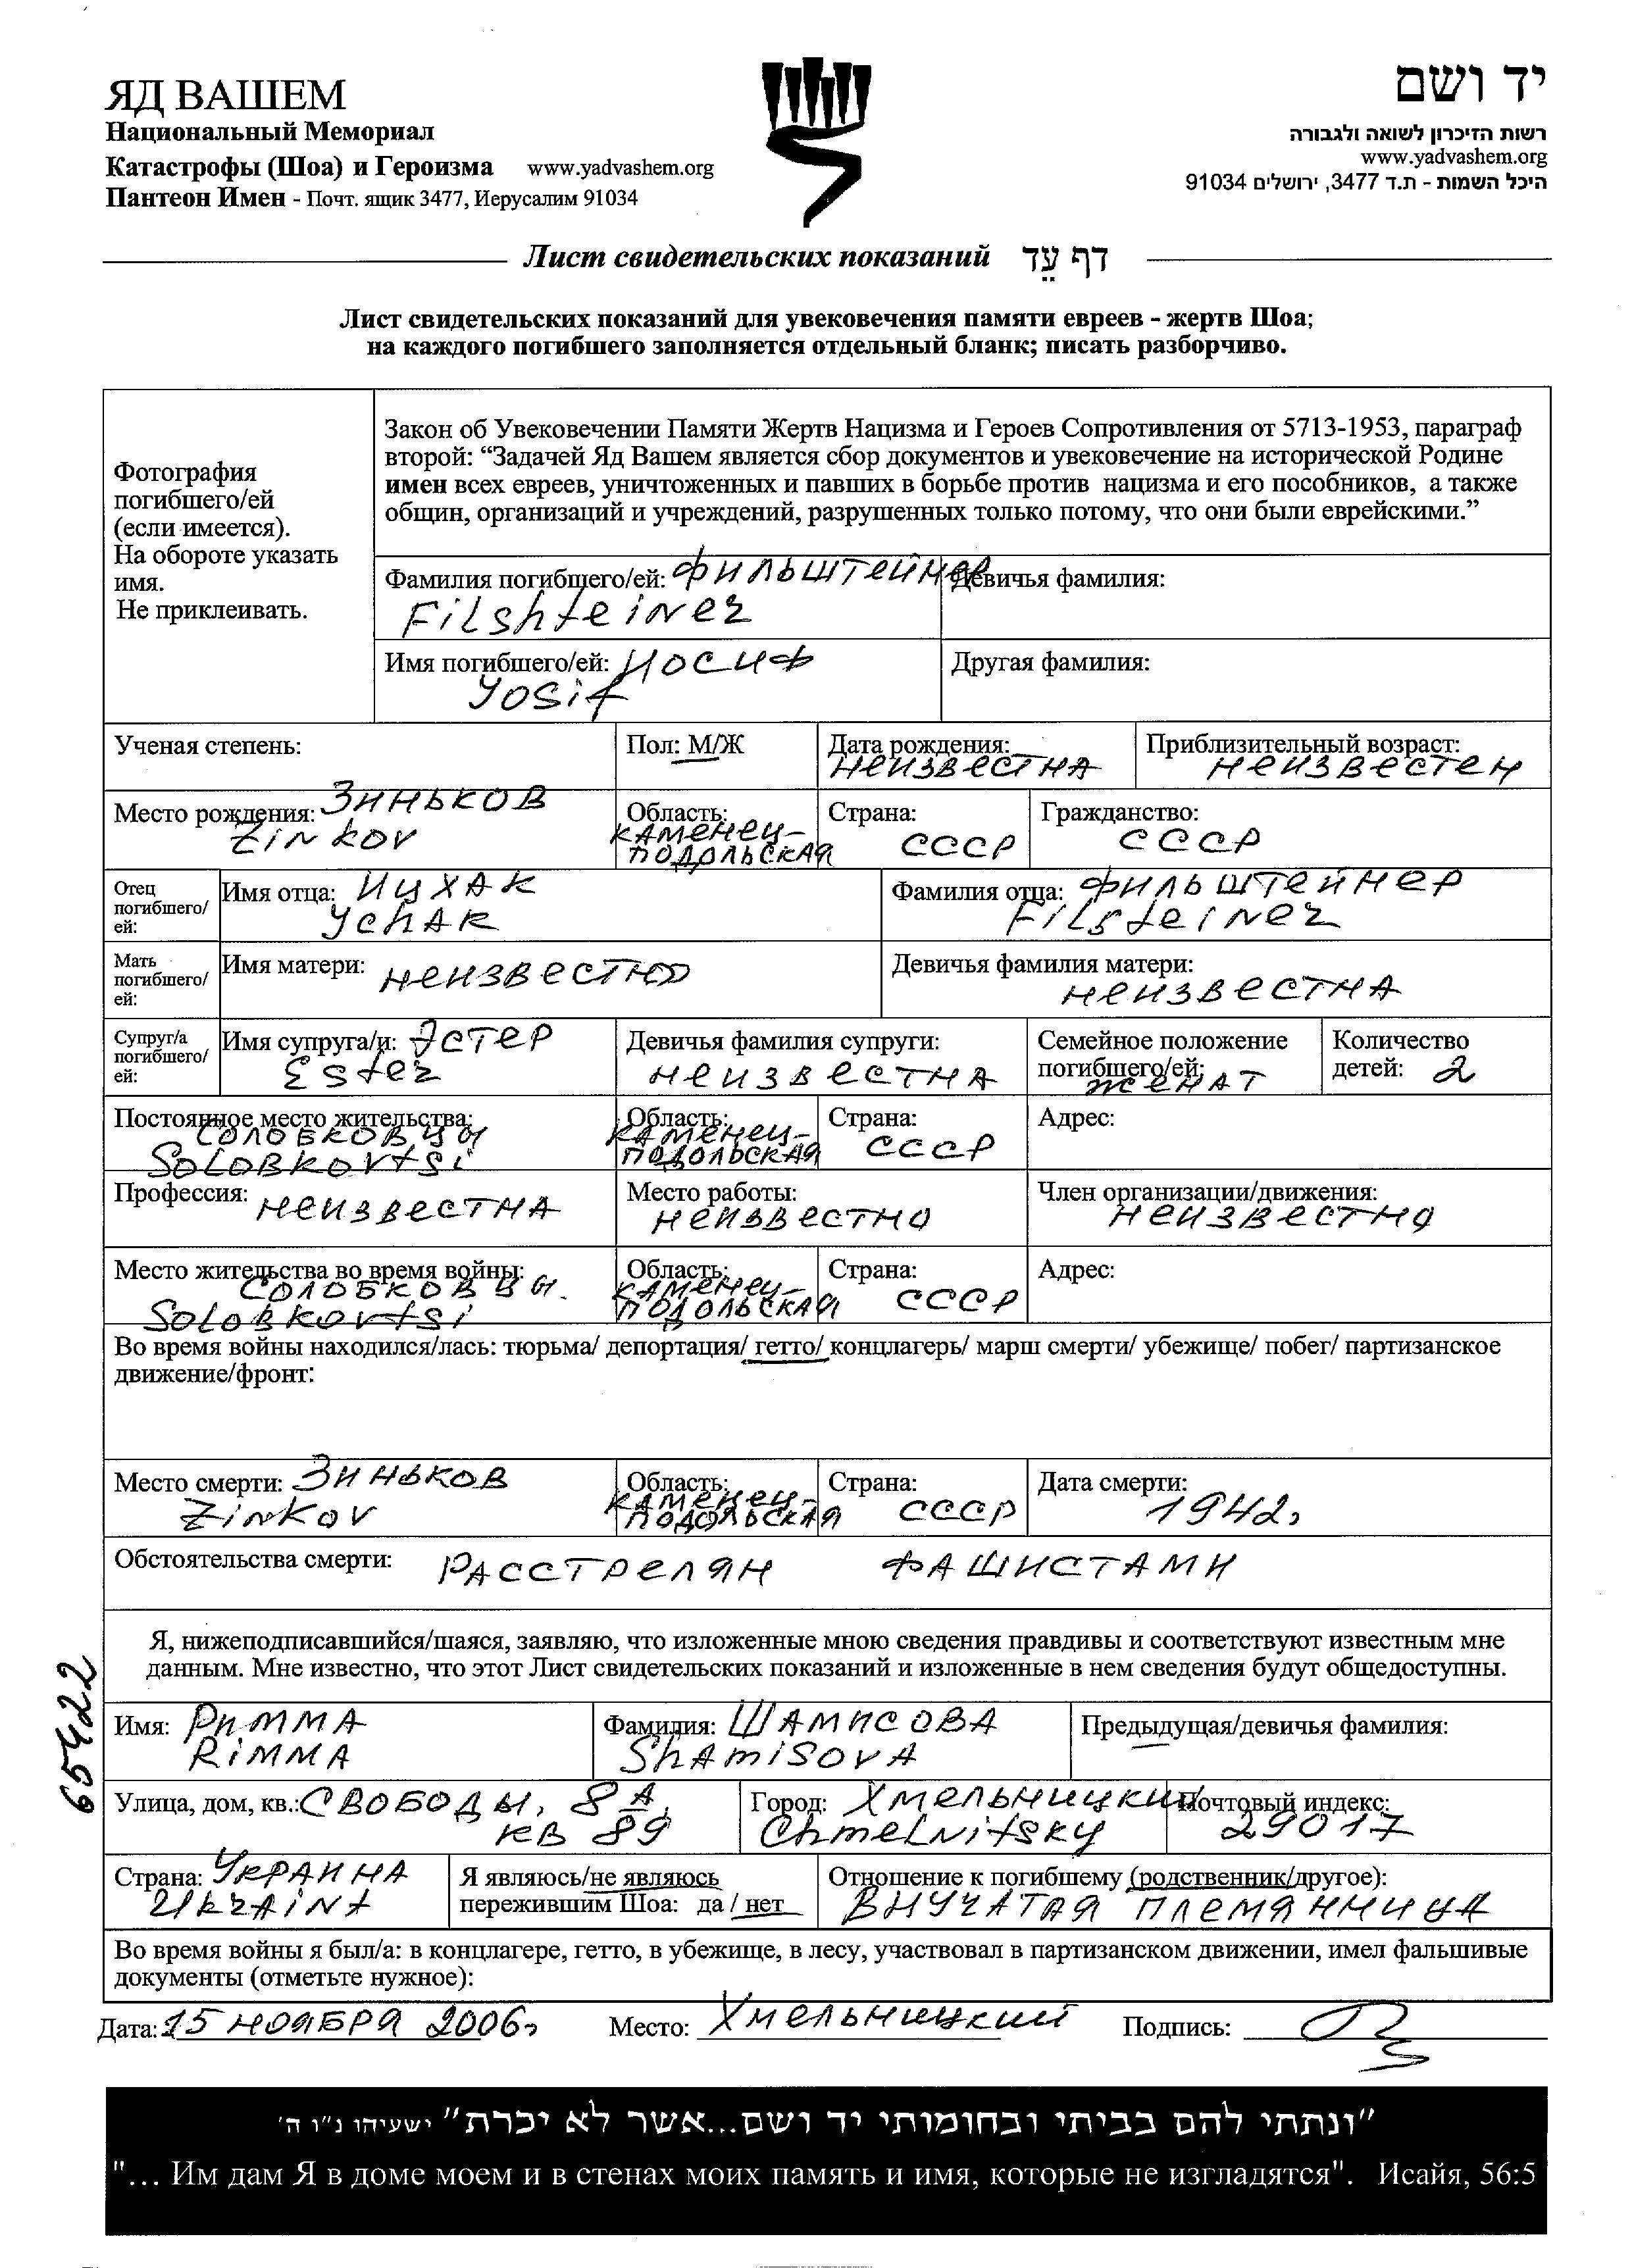 ЯД ВАШЕМ
Национальный Мемориал
Катастрофы (Шоа) и Героизма www.yadvashem.org
Пантеон Имен - Почт. ящик 3477, Иерусалим 91034
יד ושם
רשות הזיכרון לשואה ולגבורה
www.yadvashem.org
היכל השמות - ת.ד 3477, ירושלים 91034
Лист свидетельских показаний דף עֵד
Лист свидетельских показаний для увековечения памяти евреев - жертв Шоа;
на каждого погибшего заполняется отдельный бланк; писать разборчиво.
Фотография
погибшего/ей
(если имеется).
На обороте указать
имя.
Не приклеивать.
Закон об Увековечении Памяти Жертв Нацизма и Героев Сопротивления от 5713-1953, параграф
второй: “Задачей Яд Вашем является сбор документов и увековечение на исторической Родине
имен всех евреев, уничтоженных и павших в борьбе против нацизма и его пособников, а также
общин, организаций и учреждений, разрушенных только потому, что они были еврейскими.”
Фамилия погибшего/ей: Фильштейнер
Filshteiner
Девичья фамилия:
Имя погибшего/ей: Иосиф
Yosif
Другая фамилия:
Ученая степень:
Пол: М/Ж
Дата рождения:
неизвестна
Приблизительный возраст:
неизвестен
Место рождения: Зиньков
Zinkov
Область:
Каменец-
Подольская
Страна:
СССР
Гражданство:
СССР
Отец
погибшего/
ей:
Имя отца: Ицхак
Ychak
Фамилия отца: Фильштейнер
Filsteiner
Мать
погибшего/
ей:
Имя матери: неизвестно
Девичья фамилия матери:
неизвестна
Супруг/а
погибшего/
ей:
Имя супруга/и: Эстер
Ester
Девичья фамилия супруги:
неизвестна
Семейное положение
погибшего/ей:
женат
Количество
детей: 2
Постоянное место жительства:
Солобковцы
Solobkovtsi
Область:
Каменец-
Подольская
Страна:
СССР
Адрес:
Профессия: неизвестна
Место работы:
неизвестно
Член организации/движения:
неизвестно
Место жительства во время войны:
Солобковцы.
Solobkovtsi
Область:
Каменец-
Подольская
Страна:
СССР
Адрес:
Во время войны находился/лась: тюрьма/ депортация/ гетто/ концлагерь/ марш смерти/ убежище/ побег/ партизанское
движение/фронт:
Место смерти: Зиньков
Zinkov
Область:
Каменец-
Подольская
Страна:
СССР
Дата смерти:
1942г
Обстоятельства смерти: Расстрелян фашистами
Я, нижеподписавшийся/шаяся, заявляю, что изложенные мною сведения правдивы и соответствуют известным мне
данным. Мне известно, что этот Лист свидетельских показаний и изложенные в нем сведения будут общедоступны.
65422
Имя: Римма
Rimma
Фамилия: Шамисова
Shamisova
Предыдущая/девичья фамилия:
—
Улица, дом, кв.: Свободы, 8 А,
кв 89
Город: Хмельницкий
Chmelnitsky
Почтовый индекс:
29017
Страна: Украина
Ukraina
Я являюсь/не являюсь
пережившим Шоа: да / нет
Отношение к погибшему (родственник/другое):
внучатая племянница
Во время войны я был/а: в концлагере, гетто, в убежище, в лесу, участвовал в партизанском движении, имел фальшивые
документы (отметьте нужное):
Дата: 15 ноября 2006г Место: Хмельницкий Подпись:
"ונתתי להם בביתי ובחומותי יד ושם...אשר לא יכרת" ישעיהו נ"ו ה'
"... Им дам Я в доме моем и в стенах моих память и имя, которые не изгладятся". Исайя, 56:5